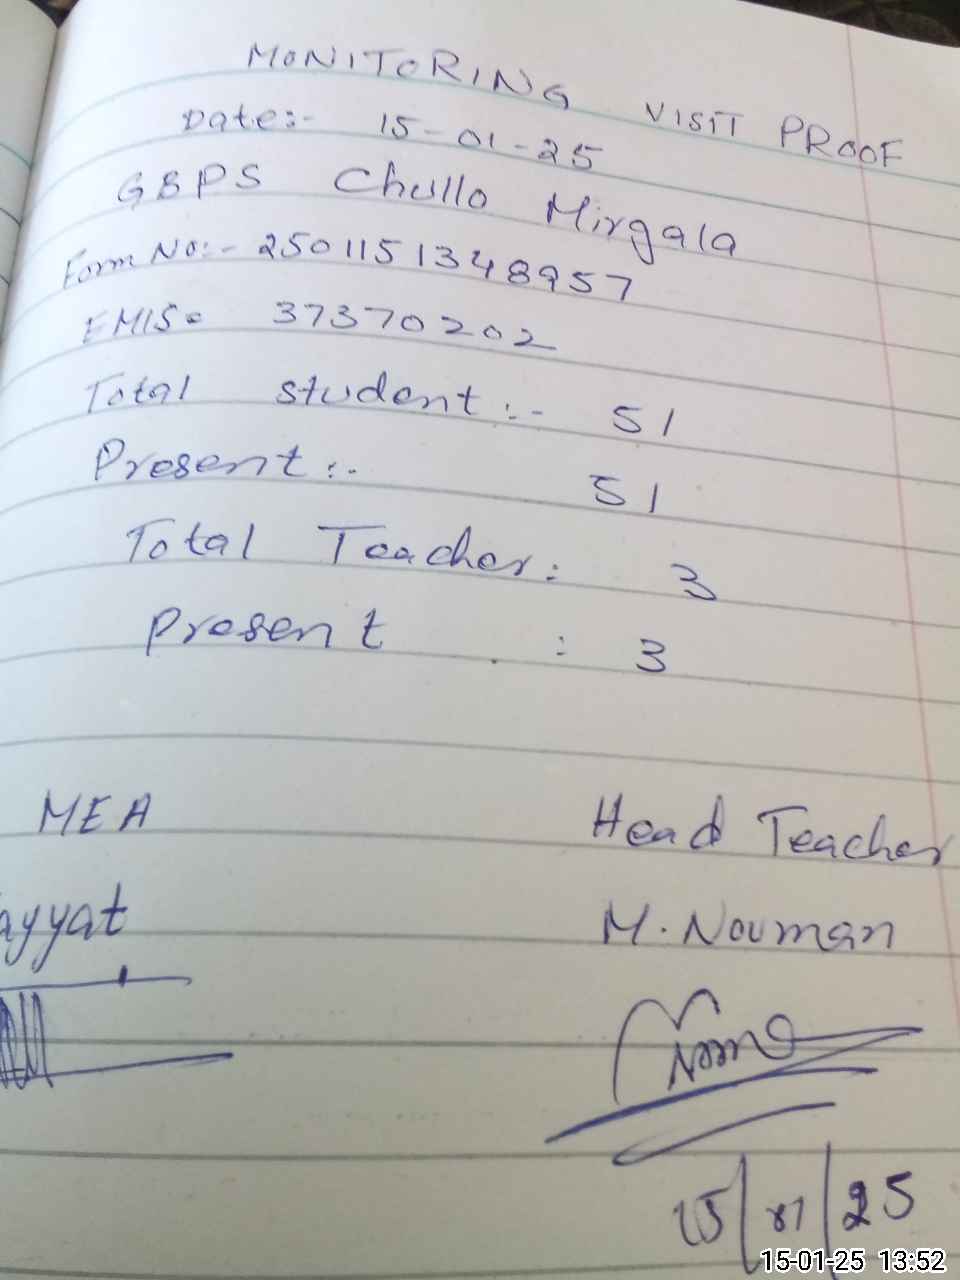 MONITORING VISIT PROOF
Date:- 15-01-25
GBPS Chullo Mirgala
Form No:- 2501151348957
EMIS: 37370202
Total student:- 51
Present:- 51
Total Teacher: 3
Present : 3
MEA Head Teacher
ayyat M. Nouman
15/01/25
15-01-25 13:52